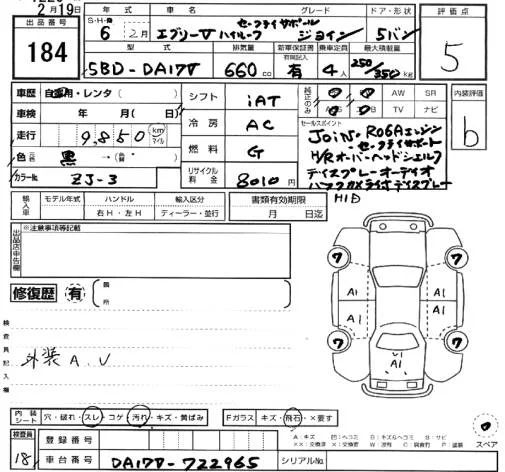 2月19日
出品番号
184
年式 車名 グレード ドア・形状
S・H・R 6 2月 エブリーV ハイルーフ セーフティサポート ジョイン 5バン
型式 排気量 新車保証書 乗車定員 最大積載量
有無記入
5BD-DA17V 660cc 有 4人 250/350kg
評価点
5
内装評価
b
車歴 自家用・レンタ( )
車検 年 月( 日)
走行 9,850 km マイル
色 元色 黒 →(色替 )
カラーNo. ZJ-3
シフト iAT
冷房 AC
燃料 G
リサイクル料金 8010円
純正のみ AW SR
TV ナビ
セールスポイント
JOIN. R06Aエンジン
セーフティサポート
H/Rオーバーヘッドシェルフ
ディスプレーオーディオ
HID
輸入車 モデル年式 ハンドル 輸入区分 書類有効期限
右H・左H ディーラー・並行 月 日迄
出品店申告欄
※注意事項等記載
修復歴 有 箇所
検査員記入欄
外装 A. U
7 7
A1 A1
A1 A1
7 7
A1
内装シート 穴・破れ・スレ・コゲ・汚れ・キズ・黄ばみ Fガラス キズ・飛石・×要す
A:キズ
スペア
検査員 18
登録番号
車台番号 DA17V-722965 シリアルNo.